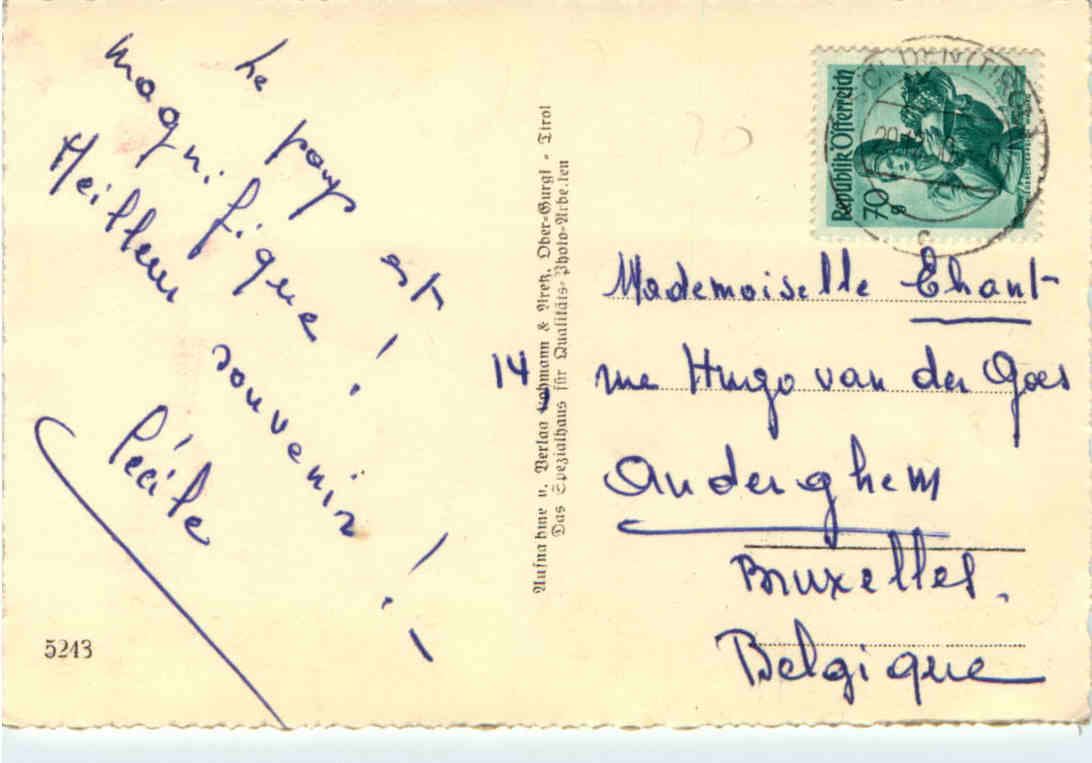 Le pays est
magnifique !
Meilleur souvenir !
Cécile
5243
Aufnahme u. Verlag Lohmann & Aretz, Ober-Gurgl - Tirol
Das Spezialhaus für Qualitäts-Photo-Arbeiten
Republik Österreich
70 g
Mademoiselle Chant-
14, rue Hugo van der Goes
Auderghem
Bruxelles.
Belgique